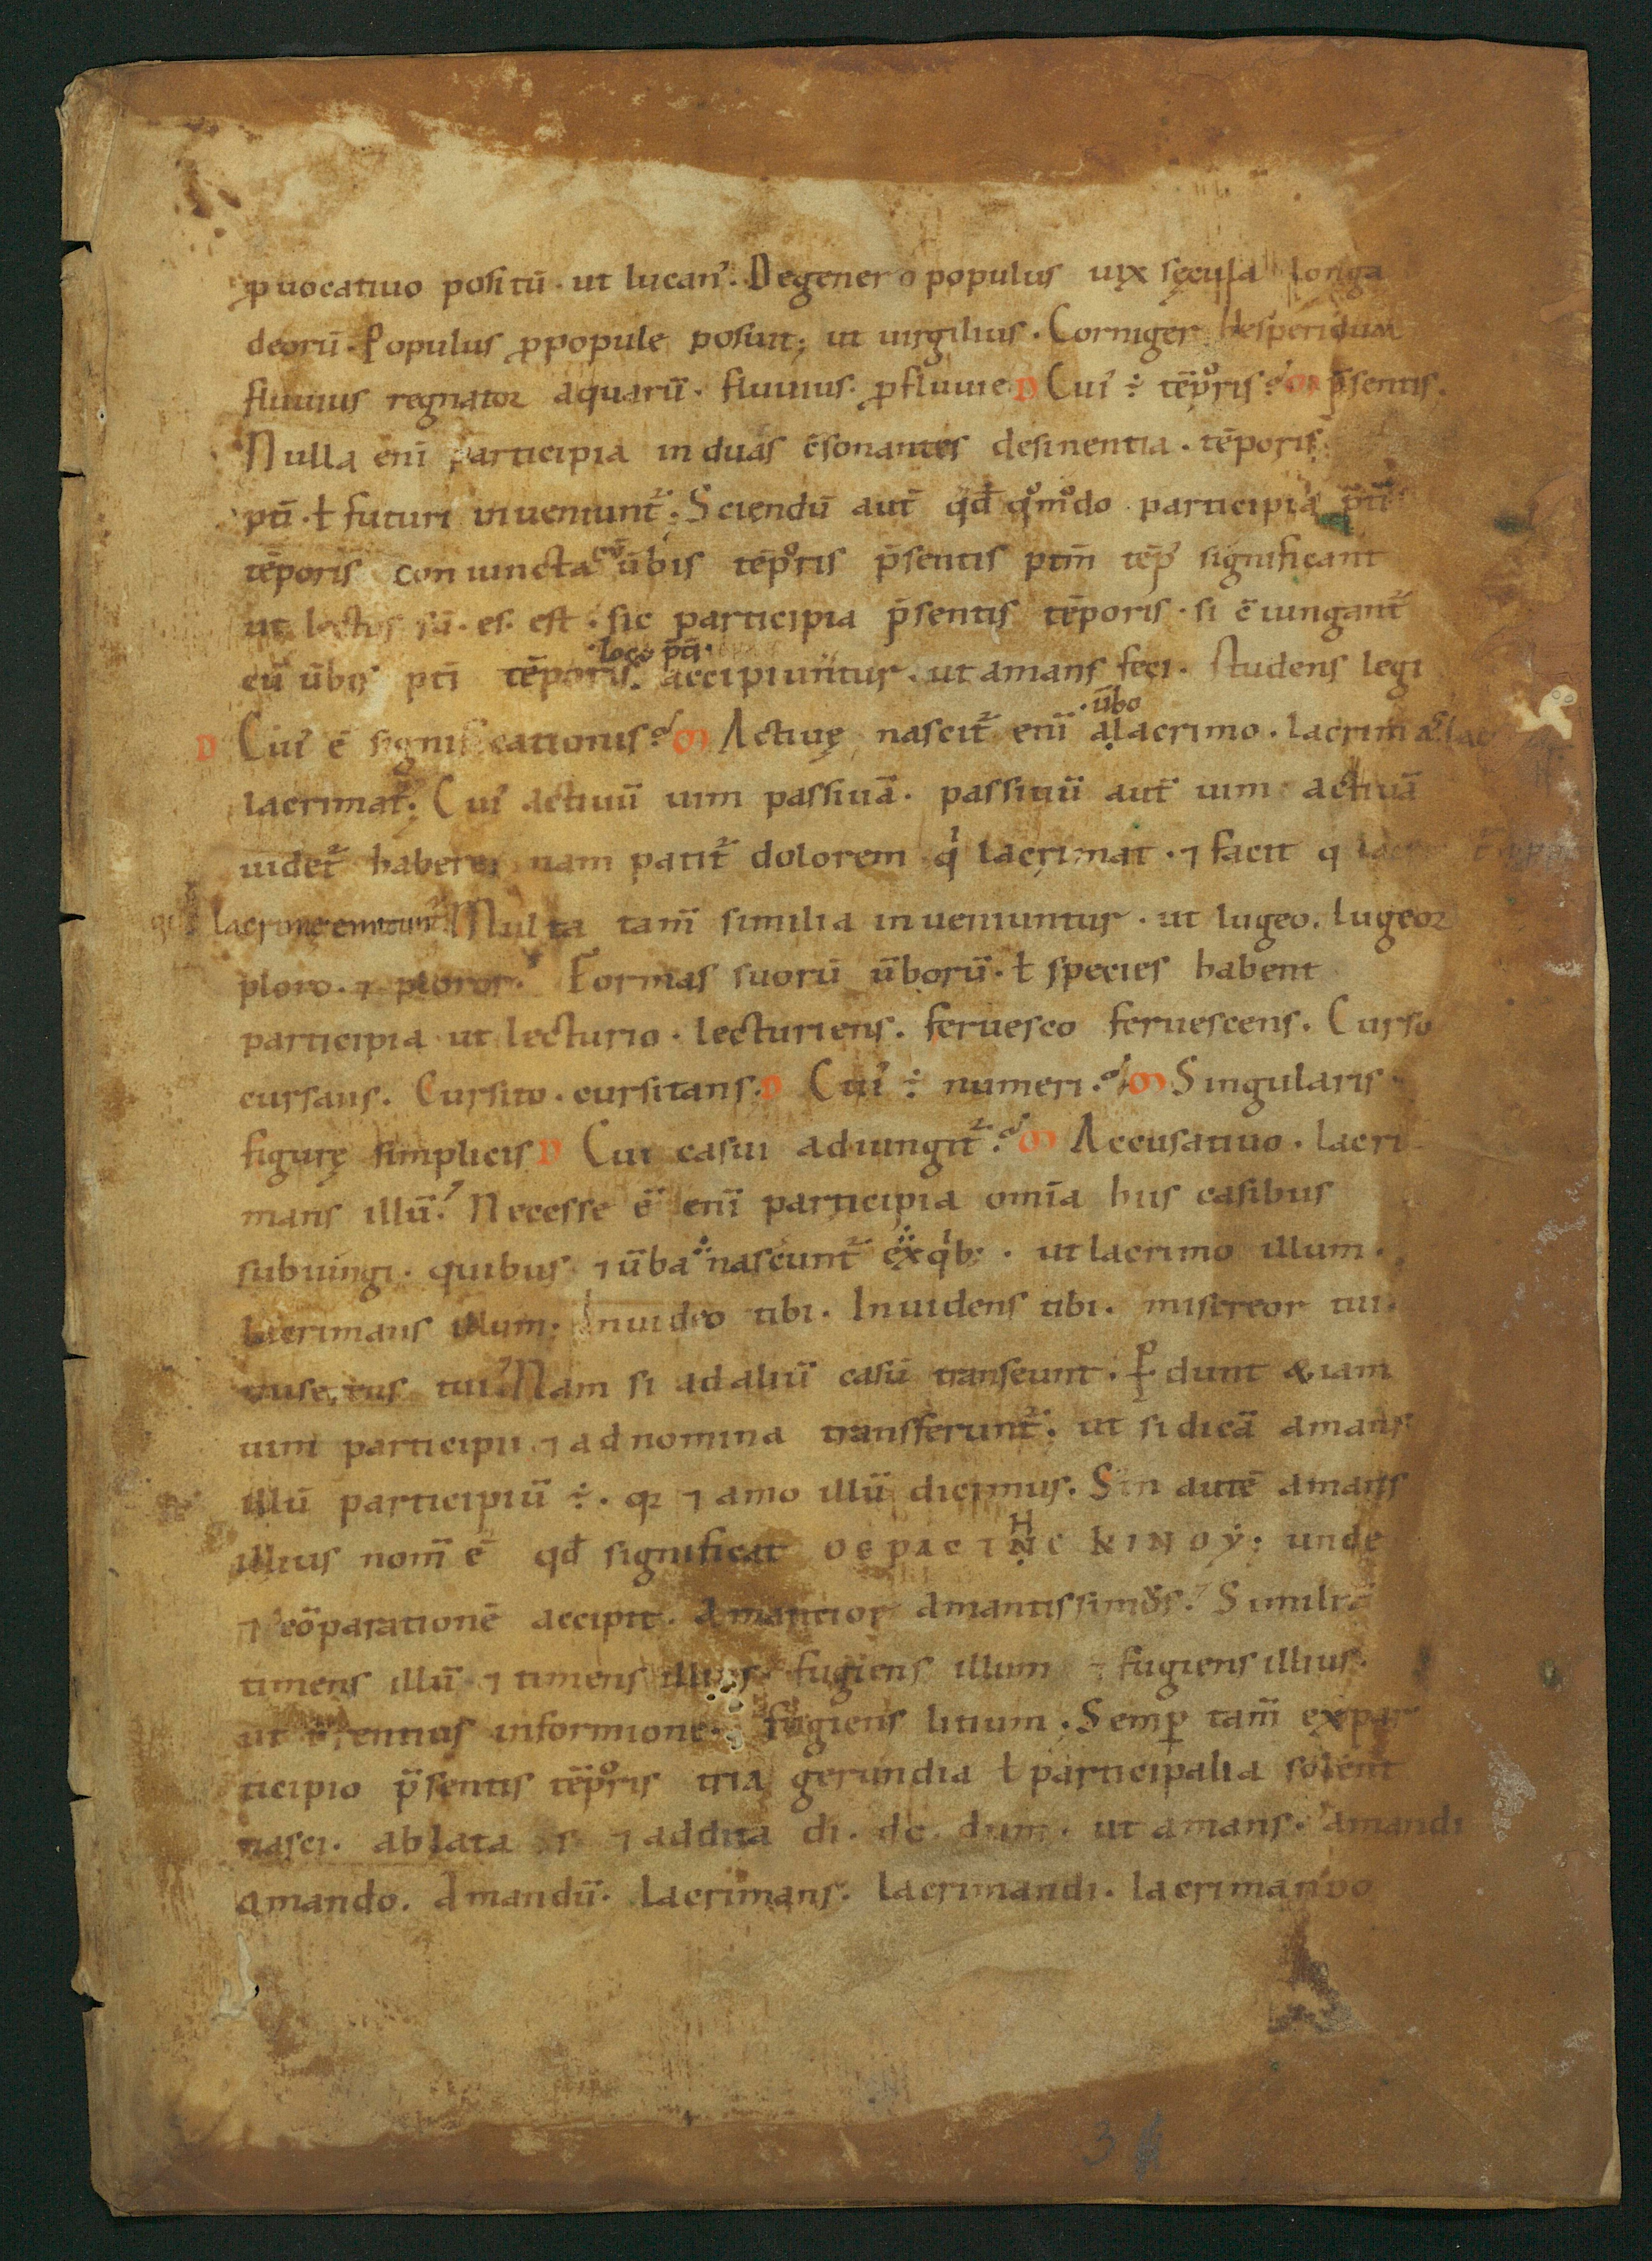 ꝓ uocatiuo positū · ut lucan᾿. Degener o populus uix sęcula longa
deorū. Populus ꝓpopule posuit; ut uirgilius. Corniger hesperidum
fluuius regnator aquarū. fluuius. ꝓfluuie D Cui᾿ ÷ tēpoꝛis? m p̄sentis.
Nulla enī participia in duas c̄sonantes desinentia. tēporis
p̄ti. ł futuri inueniunt᷑. Sciendū aut̄ qđ qͦmͦdo participia p̄ti
tēporis coniuncta cū ūbis tēpoꝛis p̄sentis ptm̄ tēp᾿ significant
ut lectus sū. es. est. sic participia p̄sentis tēporis. si c̄iungant᷑
cū ūbis pt̄i tēporis. loco pt̄i. accipiuntur. ut amans feci. studens legi
D Cui᾿ ē significationis? m Actiuę nascit᷑ enī a ūbo lacrimo. lacrimas. lac
lacrimat᷑. Cui᾿ actiuū uim passiuā. passiuū aut̄ uim actiuā
uidet᷑ habere; nam patit᷑ dolorem qͥ lacrimat. ⁊ facit q
lacrime emittunt᷑ Multa tam̄ similia inueniuntur. ut lugeo. lugeor
ploro. ⁊ ploror. Formas suorū ūborū. ł species habent
participia ut lecturio. lecturiens. feruesco feruescens. Curso
cursans. Cursito. cursitans. D Cui᾿ ÷ numeri.? m Singularis
figurę simplicis D Cui casui adiungit᷑? m Accusatiuo. lacri
mans illū. Necesse ē enī participia om̄ia hus casibus
subiungi. quibus ⁊ ūba nascunt᷑ ex qͥb;. ut lacrimo illum.
lacrimans illum. Inuideo tibi. Inuidens tibi. misereor tui.
miserens tui. Nam si ad aliū casū transeunt. ꝑdunt &iam
uim participii ⁊ ad nomina transferunt᷑. ut si dicā amans
illū participiū ÷. qꝛ ⁊ amo illū dicimus. Sin autē amans
illius nom̄ ē qđ significat OEPACTHC KINOY; unde
⁊ cōparationē accipit. Amantior amantissimus. Similit᷑
timens illū ⁊ timens illius. fugiens illum ⁊ fugiens illius.
ut terentius informione. fugiens litium. Semꝑ tam̄ expar
ticipio p̄sentis tēpoꝛis tria gerundia ł participalia solent
nasci. ablata s ⁊ addita di. do. dum. ut amans. amandi
amando. Amandū. lacrimans. lacrimandi. lacrimando
36